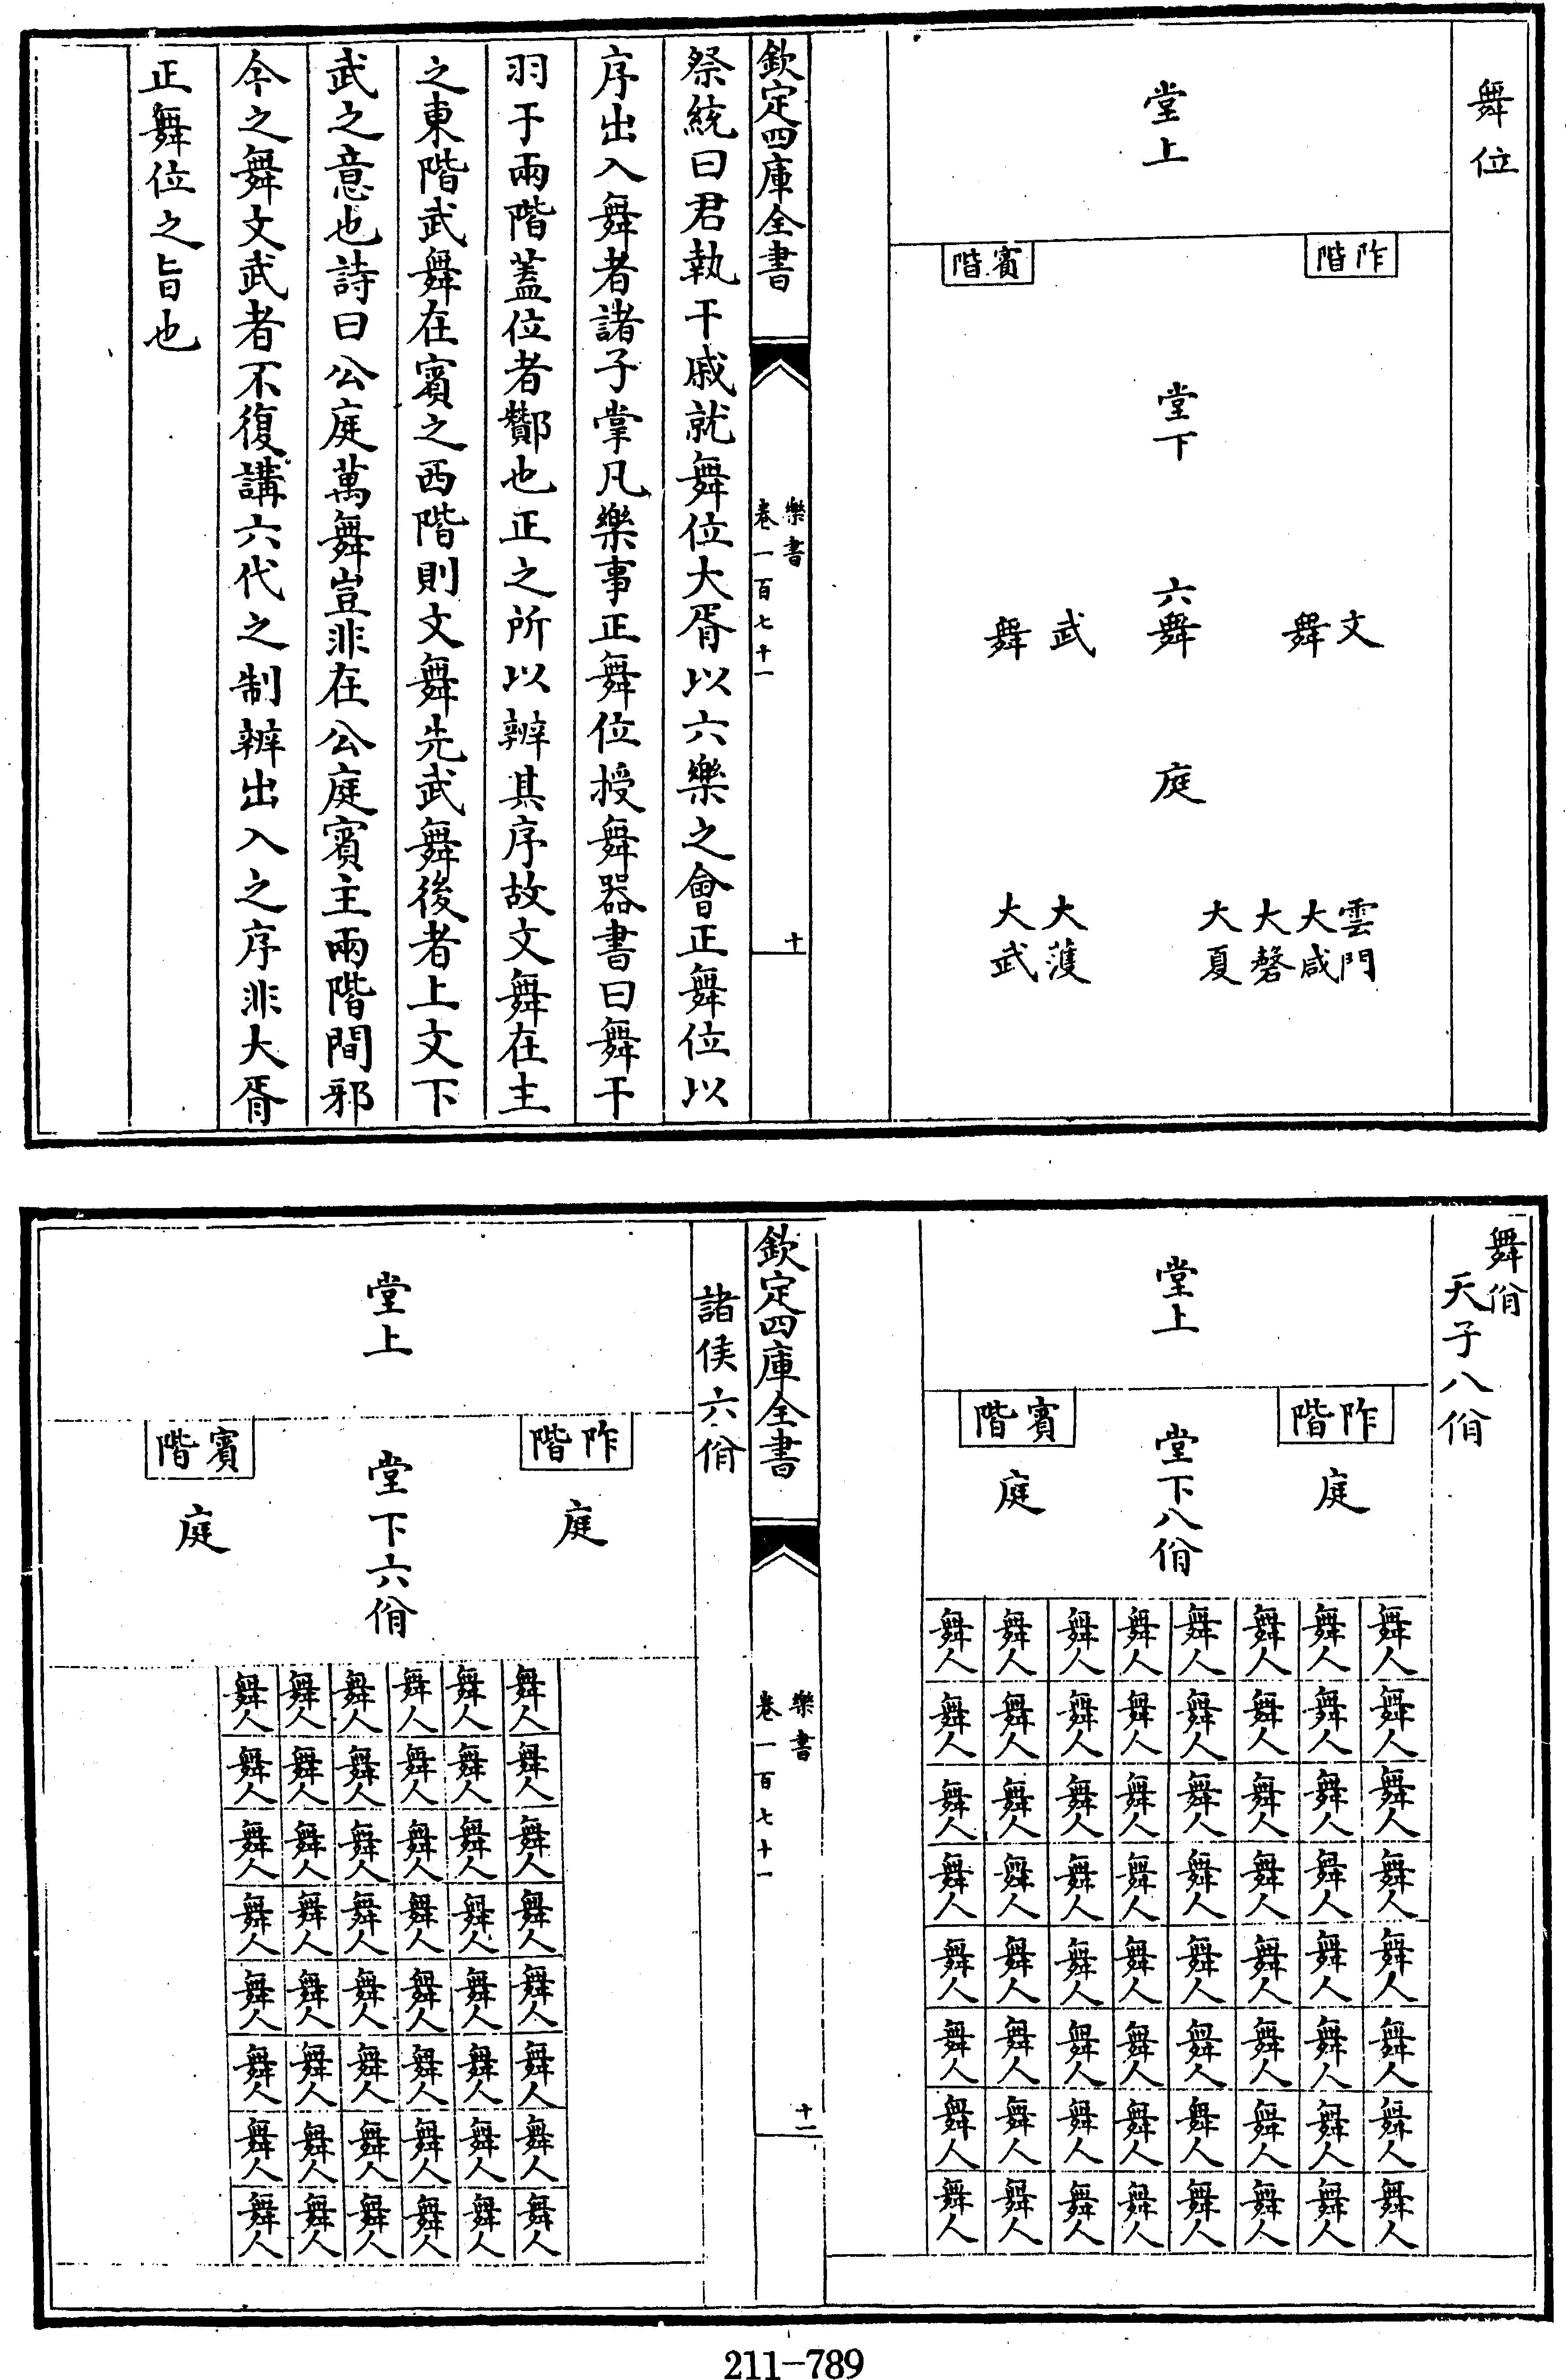 舞位
堂上
阼階
賓階
堂下
六舞
文舞
武舞
庭
雲門
大咸
大磬
大夏
大濩
大武
欽定四庫全書
樂書
卷一百七十一
十
祭統曰君執干戚就舞位大胥以六樂之會正舞位以
序出入舞者諸子掌凡樂事正舞位授舞器書曰舞干
羽于兩階蓋位者酇也正之所以辨其序故文舞在主
之東階武舞在賓之西階則文舞先武舞後者上文下
武之意也詩曰公庭萬舞豈非在公庭賓主兩階間邪
今之舞文武者不復講六代之制辨出入之序非大胥
正舞位之旨也
舞佾
天子八佾
堂上
阼階
賓階
庭
堂下八佾
庭
舞人 舞人 舞人 舞人 舞人 舞人 舞人 舞人
舞人 舞人 舞人 舞人 舞人 舞人 舞人 舞人
舞人 舞人 舞人 舞人 舞人 舞人 舞人 舞人
舞人 舞人 舞人 舞人 舞人 舞人 舞人 舞人
舞人 舞人 舞人 舞人 舞人 舞人 舞人 舞人
舞人 舞人 舞人 舞人 舞人 舞人 舞人 舞人
舞人 舞人 舞人 舞人 舞人 舞人 舞人 舞人
舞人 舞人 舞人 舞人 舞人 舞人 舞人 舞人
欽定四庫全書
樂書
卷一百七十一
十一
諸侯六佾
堂上
阼階
賓階
庭
堂下六佾
庭
舞人 舞人 舞人 舞人 舞人 舞人
舞人 舞人 舞人 舞人 舞人 舞人
舞人 舞人 舞人 舞人 舞人 舞人
舞人 舞人 舞人 舞人 舞人 舞人
舞人 舞人 舞人 舞人 舞人 舞人
舞人 舞人 舞人 舞人 舞人 舞人
舞人 舞人 舞人 舞人 舞人 舞人
舞人 舞人 舞人 舞人 舞人 舞人
211-789